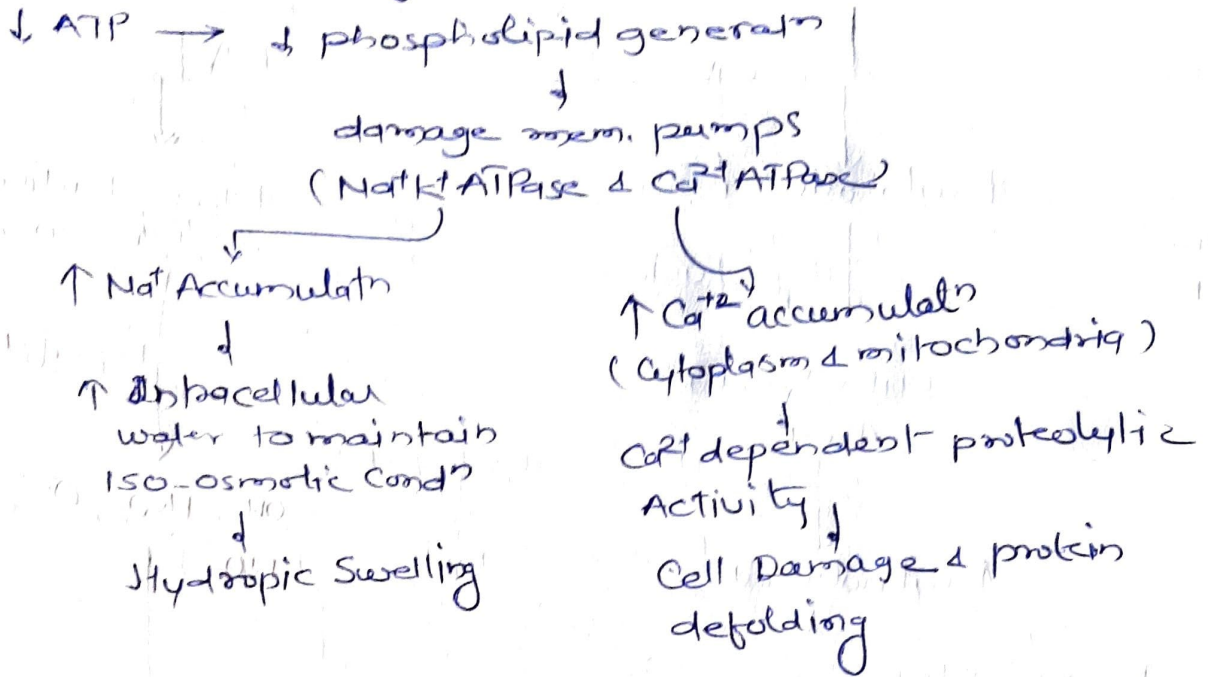 ↓ ATP → ↓ phospholipid generatn
↓
damage mem. pumps
(Na+K+ ATPase & Ca2+ ATPase)
↑ Na+ Accumulatn
↓
↑ Intracellular
water to maintain
Iso-osmotic Condn
↓
Hydropic Swelling
↑ Ca+2 accumulatn
(Cytoplasm & mitochondria)
↓
Ca2+ dependent proteolytic
Activity
↓
Cell Damage & protein
defolding